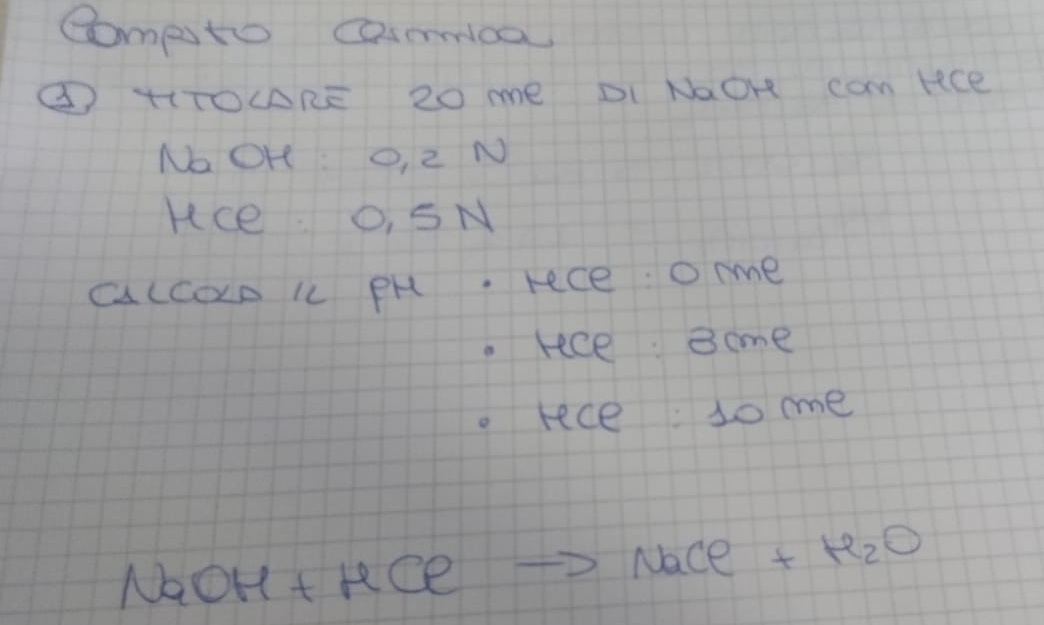 Compito Chimica
① TITOLARE 20 ml DI NaOH con HCl
NaOH : 0,2 N
HCl : 0,5 N
CALCOLO IL pH • HCl : 0 ml
• HCl : 8 ml
• HCl : 10 ml
NaOH + HCl → NaCl + H₂O